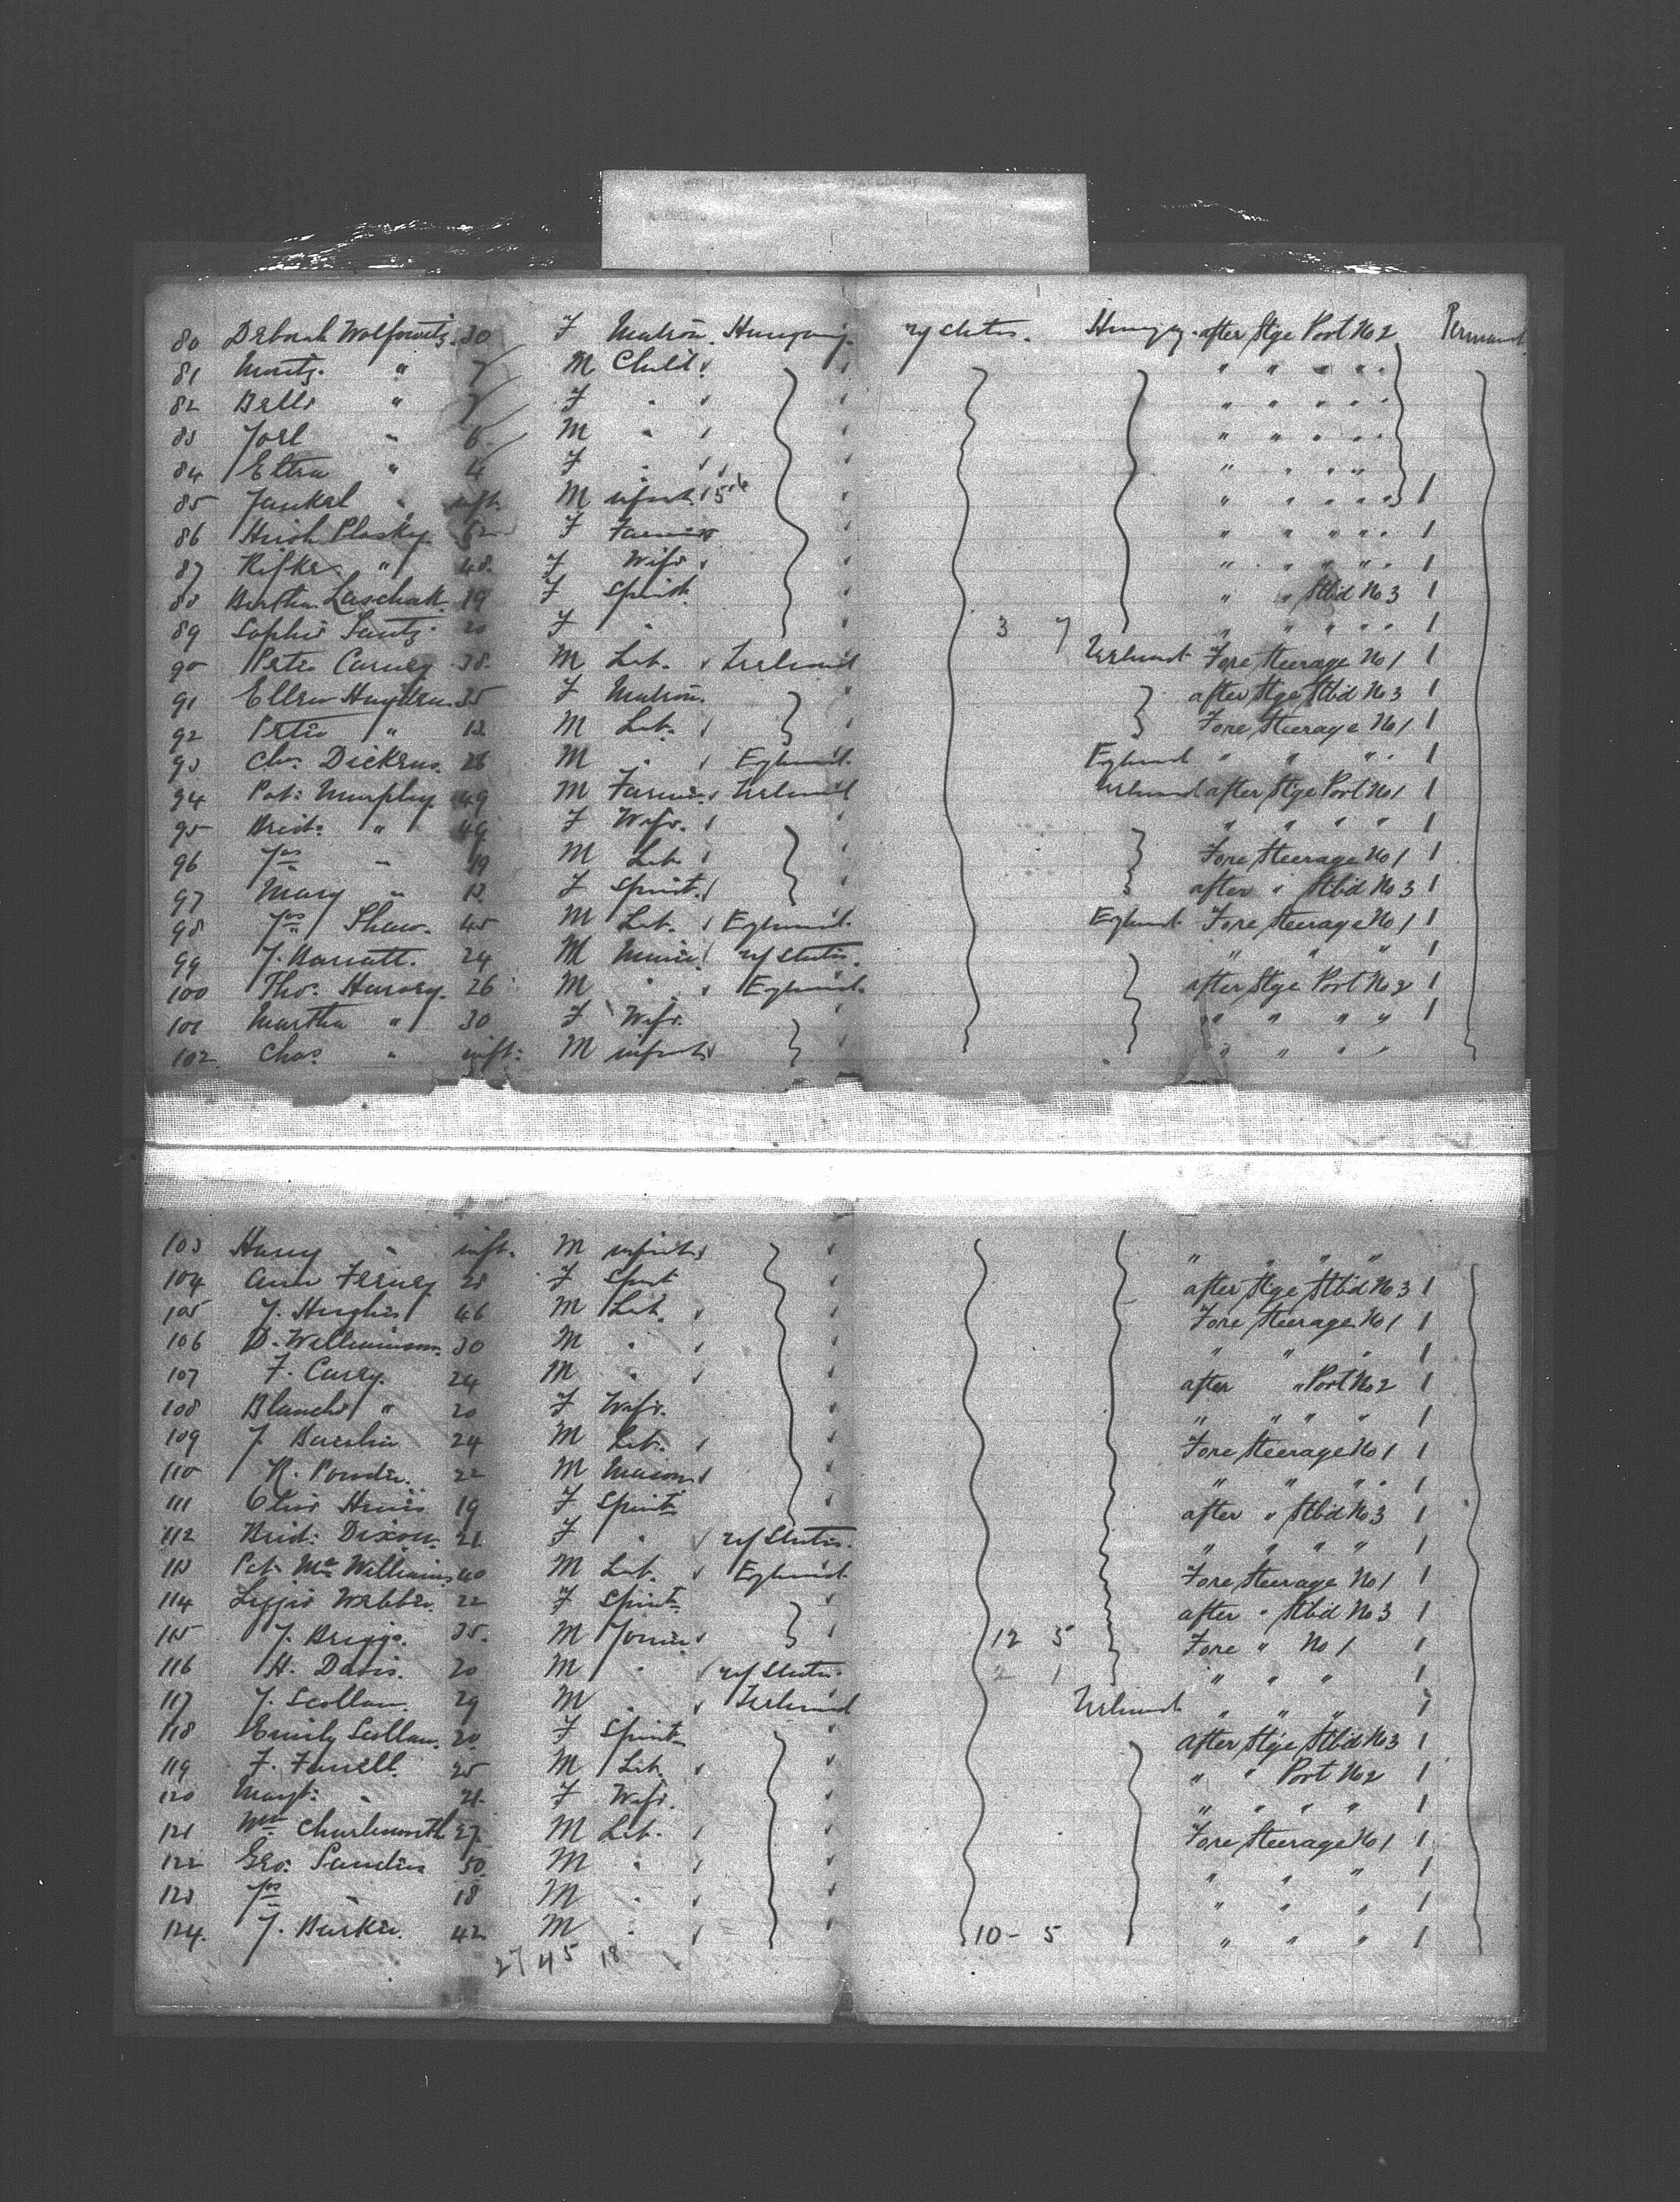 80 Deborah Wolfowitz 30 F Matron Hungary u/states Hungary after Stge Port No 2 Permanent
81 Moritz " 7 M Child " " " " "
82 Belli " 7 F " " " " " "
83 Joel " 6 M " " " " " "
84 " 4 F " " " " " "
85 Jankel " inft. M infant 5 6 " " " " " 1
86 Hirsh Plosky 52 F Farmer " " " " " 1
87 Rifke " 48 F Wife " " " " " 1
88 Bertha Laschak 19 F Spinst " " Stbd No 3 1
89 Sophie 20 F " 3 7 " " " " " 1
90 Peter Carney 38 M Lab. Ireland Ireland Fore Steerage No 1 1
91 Ellen Hayden 35 F Matron after Stge Stbd No 3 1
92 Peter " 12 M Lab. Fore Steerage No 1 1
93 Chs. Dickens 26 M " England England " " " " 1
94 Pat: Murphy 49 M Farmer Ireland Ireland after Stge Port No 1 1
95 Brid: " 49 F Wife " " " " 1
96 Jas " 19 M Lab Fore Steerage No 1 1
97 Mary " 12 F Spinst. after " Stbd No 3 1
98 Jas Shaw 45 M Lab. England England Fore Steerage No 1 1
99 J. Barratt 24 M Miner u/states " " " 1
100 Tho. Harvey 26 M " England after Stge Port No 2 1
101 Martha " 30 F Wife " " " " 1
102 Chas " inft: M infant " " " "
103 Harry " inft. M infant " " " "
104 Ann 28 F Spinst after Stge Stbd No 3 1
105 J. Hughes 46 M Lab. Fore Steerage No 1 1
106 D. Williamson 30 M " " " " 1
107 F. Carey 24 M " after " Port No 2 1
108 Blanch " 20 F Wife " " " " 1
109 J. 24 M Lab. Fore Steerage No 1 1
110 R. 22 M Mason " " " " 1
111 19 F Spinst after " Stbd No 3 1
112 Brid: Dixon 21 F " u/States " " " " 1
113 Pat: McWilliams 40 M Lab. England Fore Steerage No 1 1
114 Lizzie Webber 22 F Spinst after " Stbd No 3 1
115 J. Briggs 35 M Joiner 12 5 Fore " No 1 1
116 H. Davis 20 M " u/States 2 1 " " " 1
117 J. Scollan 29 M " Ireland Ireland " " " 1
118 Emily Scollan 20 F Spinst after Stge Stbd No 3 1
119 F. Farrell 25 M Lab. " " Port No 2 1
120 Margt: " 21 F Wife " " " " 1
121 Wm Charlesworth 27 M Lab. Fore Steerage No 1 1
122 Geo: 50 M " " " " 1
123 Jas " 18 M " " " " 1
124 J. Barker 42 M " 10 - 5 " " " 1
27 45 18